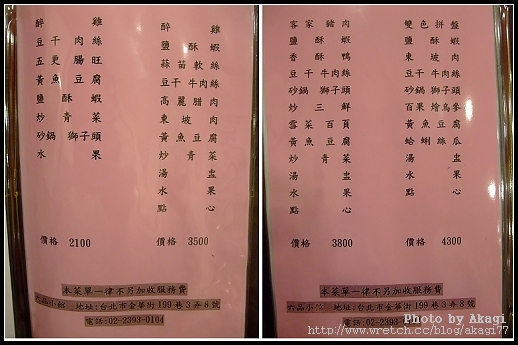 醉雞
豆干肉絲
五更腸旺
黃魚豆腐
鹽酥蝦
炒青菜
砂鍋獅子頭
水果
價格 2100
醉雞
鹽酥蝦
蒜苗軟絲
豆干牛肉絲
高麗腊肉
東坡肉
黃魚豆腐
炒青菜
湯盅
水果
點心
價格 3500
本菜單一律不另加收服務費
六品小館 地址:台北市金華街199巷3弄8號
電話:02-2393-0104
客家豬肉
鹽酥蝦
香酥鴨
豆干牛肉絲
砂鍋獅子頭
炒三鮮
雪菜百頁
黃魚豆腐
炒青菜
湯盅
水果
點心
價格 3800
雙色拼盤
鹽酥蝦
東坡肉
豆干牛肉絲
砂鍋獅子頭
百果燴烏參
黃魚豆腐
蛤蜊絲瓜
湯盅
水果
點心
價格 4300
本菜單一律不另加收服務費
六品小館 地址:台北市金華街199巷3弄8號
電話:02-2393-
Photo by Akagi
http://www.wretch.cc/blog/akagi77